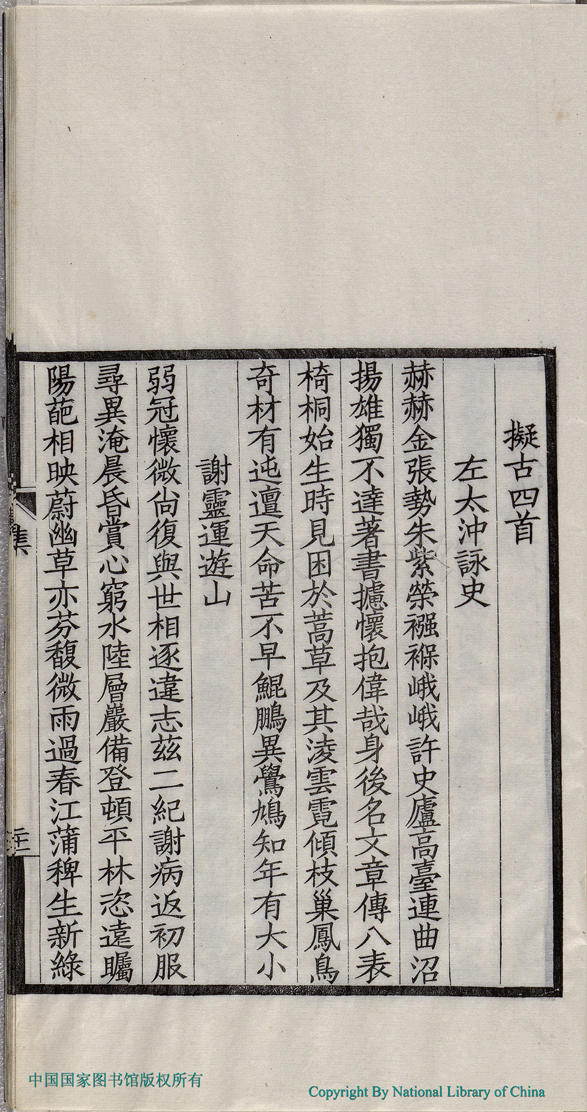 擬古四首
左太沖詠史
赫赫金張勢朱紫榮襁褓峨峨許史廬高臺連曲沼
揚雄獨不達著書攄懷抱偉哉身後名文章傳八表
椅桐始生時見困於蒿草及其淩雲霓傾枝巢鳳鳥
奇材有迍邅天命苦不早鯤鵬異鷽鳩知年有大小
謝靈運遊山
弱冠懷微尚復與世相逐違志茲二紀謝病返初服
尋異淹晨昏賞心窮水陸層巖備登頓平林恣遠矚
陽葩相映蔚幽草亦芬馥微雨過春江蒲稗生新綠
集
二十一
中国国家图书馆版权所有
Copyright By National Library of China